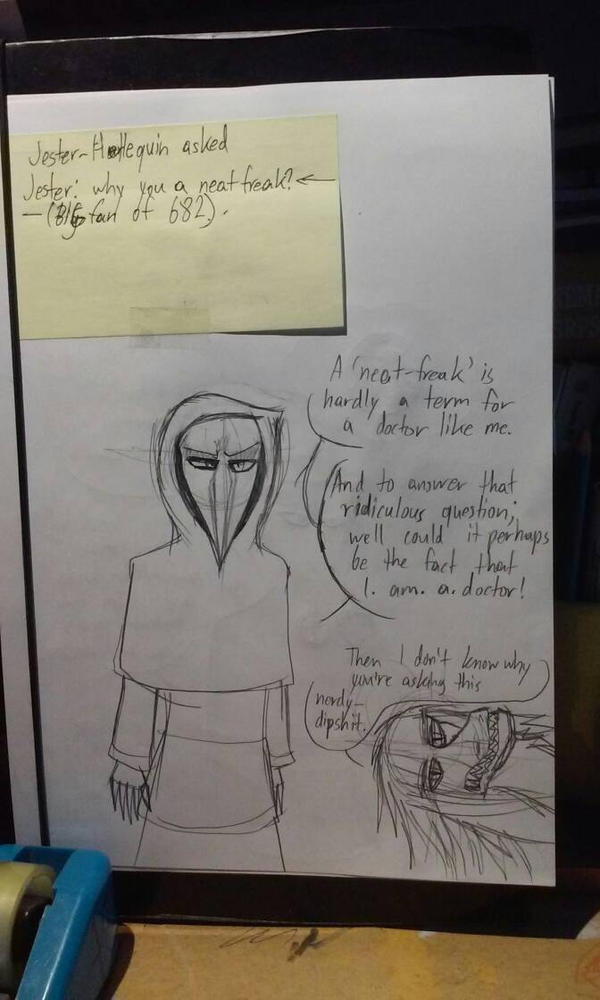 Jester-Harlequin asked
Jester: why you a neat freak? ←
- (Big fan of 682).
A 'neat-freak' is
hardly a term for
a doctor like me.
And to answer that
ridiculous question;
well could it perhaps
be the fact that
I. am. a. doctor!
Then I don't know why
you're asking this
nerdy-
dipshit.